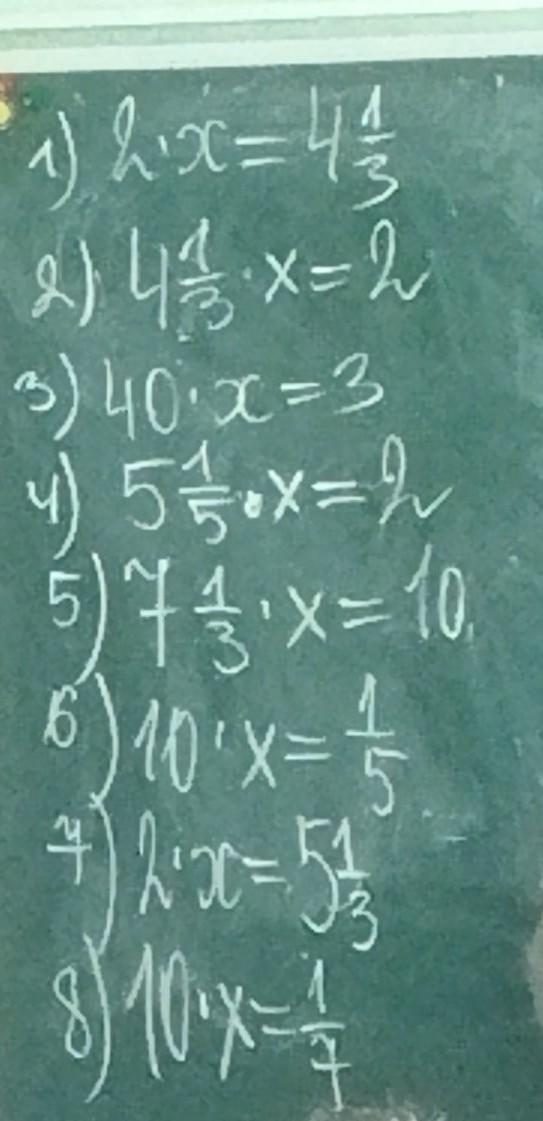 1) 2·x = 4 1/3
2) 4 1/3 · x = 2
3) 40·x = 3
4) 5 1/5 · x = 2
5) 7 1/3 · x = 10
6) 10·x = 1/5
7) 2·x = 5 1/3
8) 10·x = 1/7